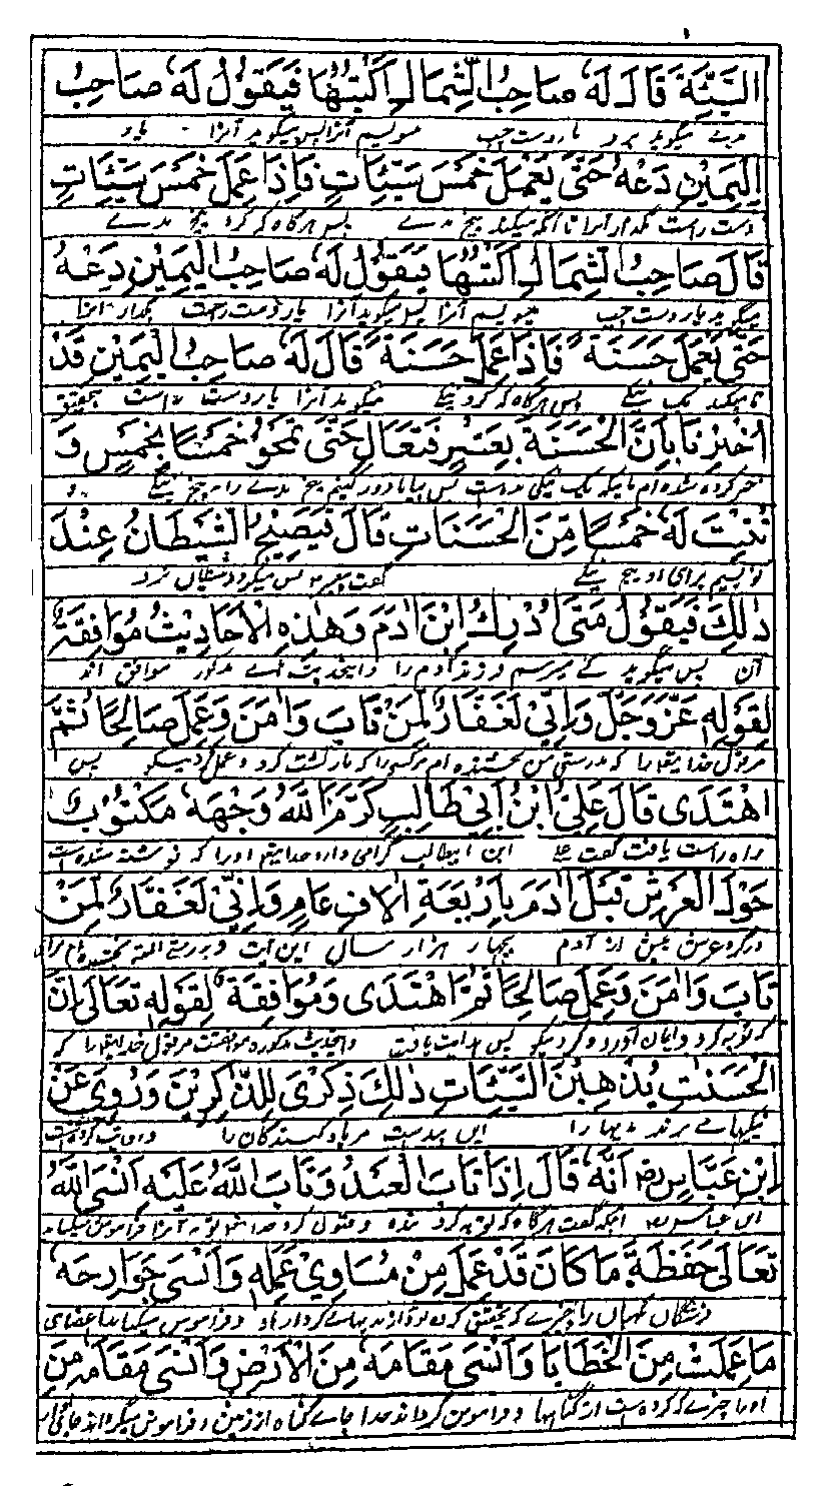 السَّيِّئَةَ قَالَ لَهٗ صَاحِبُ الشِّمَالِ اَكْتُبُهَا فَيَقُوْلُ لَهٗ صَاحِبُ
بدے میگوید مرو یار دست چپ مینویسم آنرا پس میگوید آنرا یار
الْيَمِيْنِ دَعْهُ حَتّٰى يَعْمَلَ خَمْسَ سَيِّئَاتٍ فَاِذَا عَمِلَ خَمْسَ سَيِّئَاتٍ
دست راست بگذار آنرا تا آنکه میکند پنج بدے پس هرگاه که کرد پنج بدے
قَالَ صَاحِبُ الشِّمَالِ اَكْتُبُهَا فَيَقُوْلُ لَهٗ صَاحِبُ الْيَمِيْنِ دَعْهُ
میگوید یار دست چپ مینویسم آنرا پس میگوید آنرا یار دست راست بگذار آنرا
حَتّٰى يَعْمَلَ حَسَنَةً فَاِذَا عَمِلَ حَسَنَةً قَالَ لَهٗ صَاحِبُ الْيَمِيْنِ قَدْ
تا میکند یک نیکے پس هرگاه که کرد نیکے میگوید آنرا یار دست راست بتحقیق
اُخْبِرْنَا بِاَنَّ الْحَسَنَةَ بِعَشْرٍ فَتَعَالِ حَتّٰى نَمْحُوَ خَمْسًا بِخَمْسٍ وَ
خبر کرده شده ایم باینکه یک نیکی بده است پس بیا تا دور کنیم پنج بدے را به پنج نیکے و
نُثْبِتَ لَهٗ خَمْسًا مِّنَ الْحَسَنَاتِ قَالَ فَيَصِيْحُ الشَّيْطَانُ عِنْدَ
نویسیم برای او پنج نیکے گفت پیغمبر پس میگرد شیطان نزد
ذٰلِكَ فَيَقُوْلُ مَتٰى اُدْرِكُ ابْنَ اٰدَمَ وَهٰذِهِ الْاَحَادِيْثُ مُوَافِقَةٌ
آن پس میگوید کے میرسم فرزند آدم را و این حدیث هاے مذکور موافق اند
لِقَوْلِهٖ عَزَّ وَجَلَّ وَاِنِّيْ لَغَفَّارٌ لِّمَنْ تَابَ وَاٰمَنَ وَعَمِلَ صَالِحًا ثُمَّ
مر قول خدایتعالی را که بدرستی من بخشنده ام مر کسے را که بازگشت کرد و عمل کرد نیکو پس
اهْتَدٰى قَالَ عَلِيُّ ابْنُ اَبِيْ طَالِبٍ كَرَّمَ اللّٰهُ وَجْهَهٗ مَكْتُوْبٌ
راه راست یافت گفت علی ابن ابیطالب گرامی دارد خدایتعالی او را که نوشته شده است
حَوْلَ الْعَرْشِ قَبْلَ اٰدَمَ بِاَرْبَعَةِ اٰلَافِ عَامٍ وَاِنِّيْ لَغَفَّارٌ لِّمَنْ
در گرد عرش پیش از آدم بچهار هزار سال این آیت و بدرستے البته بخشنده ام مر
تَابَ وَاٰمَنَ وَعَمِلَ صَالِحًا ثُمَّ اهْتَدٰى وَمُوَافِقَةٌ لِّقَوْلِهٖ تَعَالٰى اِنَّ
که توبه کرد و ایمان آورد و کرد نیکو پس هدایت یافت و این حدیث مذکوره موافقست مر قول خدایتعالی را که
الْحَسَنٰتِ يُذْهِبْنَ السَّيِّئَاتِ ذٰلِكَ ذِكْرٰى لِلذّٰكِرِيْنَ وَرُوِيَ عَنْ
نیکیهاے برند بدیها را این پندست مر یاد کنندگان را و روایت کرده است
ابْنِ عَبَّاسٍ رض اَنَّهٗ قَالَ اِذَا تَابَ الْعَبْدُ وَتَابَ اللّٰهُ عَلَيْهِ اَنْسَى اللّٰهُ
ابن عباس رض آنکه گفت هرگاه که توبه کرد بنده و قبول کرد خدا توبه آنرا فراموش میکناند
تَعَالٰى حَفَظَةً مَا كَانَ قَدْ عَمِلَ مِنْ مُسَاوِيْ عَمَلِهٖ وَاَنْسٰى جَوَارِحَهٗ
فرشتگان نگهبان را چیزے که بتحقیق کرده بود از بدیهاے کردار او و فراموش میکناند اعضای
مَا عَمِلَتْ مِنَ الْخَطَايَا وَاَنْسٰى مَقَامَهٗ مِنَ الْاَرْضِ وَاَنْسٰى مَقَامَهٗ مِنَ
او را چیزے که کرده است از گناهها و فراموش گرداند خدا جاے گناه از زمین و فراموش میگرداند جاے